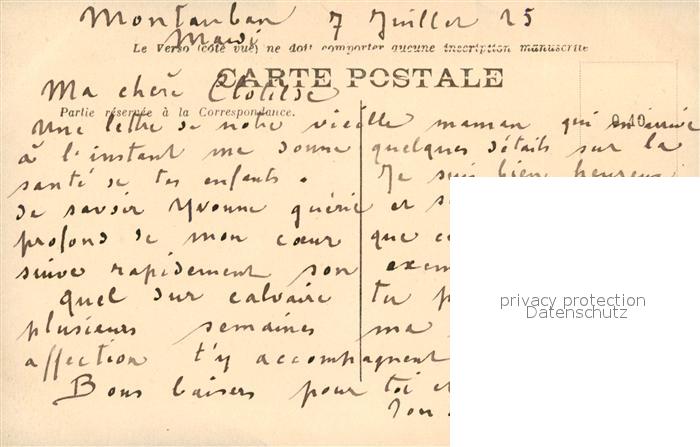 Montauban 7 Juillet 25
Mardi
Le Verso (côté vue) ne doit comporter aucune inscription manuscrite
CARTE POSTALE
Ma chère Clotilde
Partie réservée à la Correspondance.
Une lettre de notre vieille maman qui arrive
à l'instant me donne quelques détails sur la
santé de tes enfants. Je suis bien heureux
de savoir Yvonne guérie et
profond de mon cœur que
suive rapidement son
Quel dur calvaire tu
plusieurs semaines ma
affection t'y accompagnent
Bons baisers pour toi et
Ton
privacy protection
Datenschutz